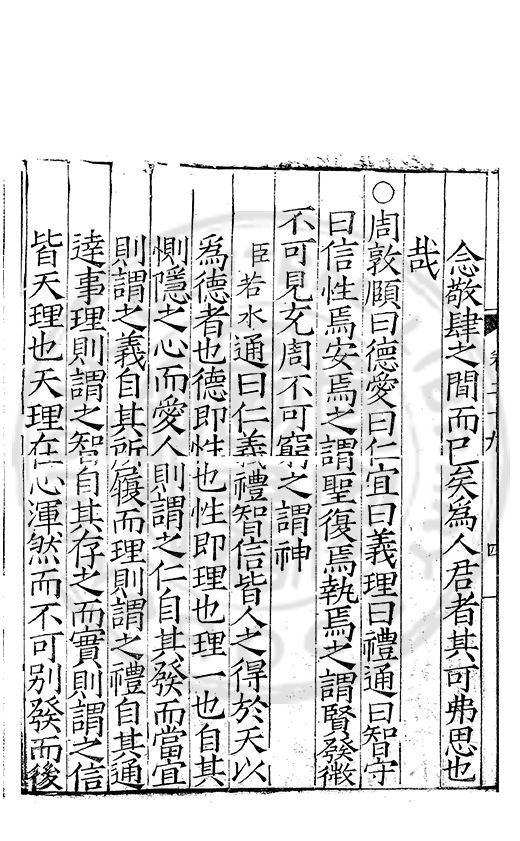 念敬肆之間而已矣為人君者其可弗思也
哉
○周敦頤曰德愛曰仁宜曰義理曰禮通曰智守
曰信性焉安焉之謂聖復焉執焉之謂賢發微
不可見充周不可窮之謂神
臣若水通曰仁義禮智信皆人之得於天以
為德者也德即性也性即理也理一也自其
惻隱之心而愛人則謂之仁自其發而當宜
則謂之義自其所履而理則謂之禮自其通
達事理則謂之智自其存之而實則謂之信
皆天理也天理在心渾然而不可别發而後